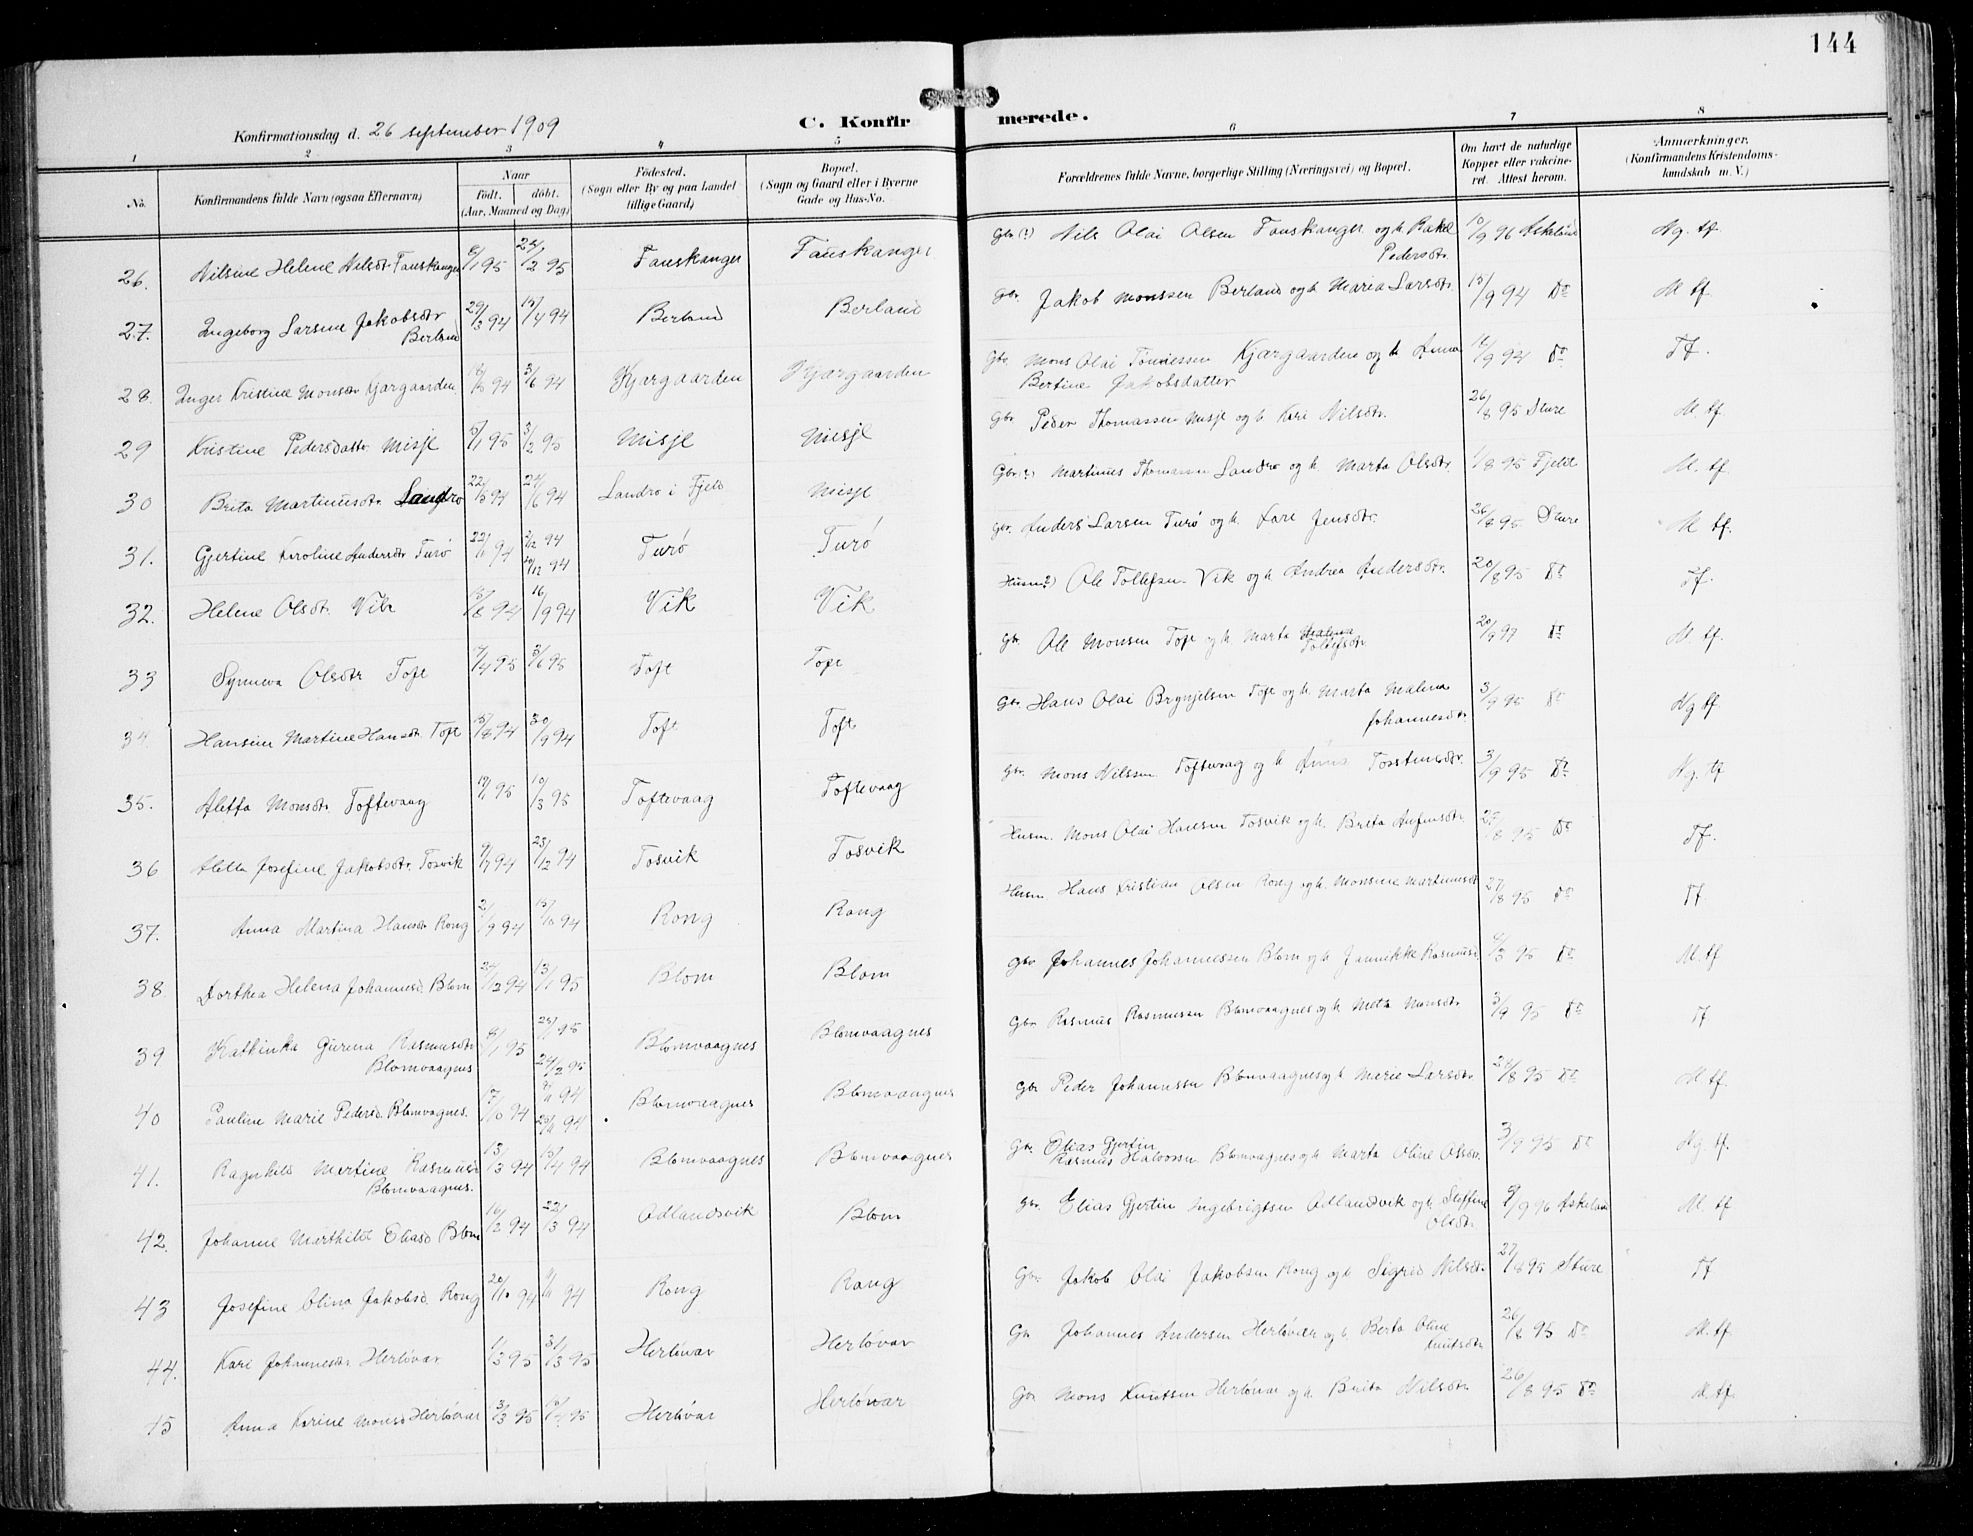 144
Konfirmationsdag d. 26 september 1909
C. Konfirmerede.
1 2 3 4 5 6 7 8
No.
Konfirmandens fulde Navn (ogsaa Efternavn)
Naar
födt. döbt.
(Aar, Maaned og Dag)
Födested.
(Sogn eller By og paa Landet
tillige Gaard)
Bopæl.
(Sogn og Gaard eller i Byerne
Gade og Hus-No.
Forældrenes fulde Navne, borgerlige Stilling (Næringsvei) og Bopæl.
Om havt de naturlige
Kopper eller vakcine-
ret. Attest herom.
Anmærkninger.
(Konfirmandens Kristendoms-
kundskab m. V.)
26. Nilsine Helene Nilsdtr Fauskanger 8/1 95 Fauskanger Fauskanger Gbr (?) Nils Olai Olsen Fauskanger og h. Rakel 10/9 96 Askeland Ng. tf
Pedersdtr.
27. Ingeborg Larsine Jakobsdtr 29/3 94 15/4 94 Berland Berland Gbr. Jakob Monssen Berland og h Maria Larsdtr. 15/9 94 Do M tf.
Berland
28. Inger Kristine Monsdtr Kjærgaarden 3/6 94 Kjærgaarden Kjærgaarden Gbr Mons Olai Tönnessen Kjærgaarden og h Anna Do Tf.
Bertine Jakobsdatter
29 Kristine Pedersdattr Misje 5/1 95 3/2 95 Misje Misje Gbr Peder Thomassen Misje og h Kari Nilsdtr. 26/8 95 Sture M. tf
30 Brita Martinusdtr. Landro 22/5 94 24/6 94 Landro i Fjeld Misje Gbr ?) Martinus Thomassen Landro og h. Marta Olsdtr. 1/8 95 Fjeld M. tf.
31. Gjertine Karoline Andersdtr Turö 22/11 94 2/12 94 Turö Turö Gbr. Anders Larsen Turö og h. Kari Jensdtr. 26/8 95 Sture M tf.
26/12 94
32. Helene Olsdtr. Vik 94 16/9 94 Vik Vik Husm ?) Ole Tollefsen Vik og h Andrea Andersdtr. 20/8 95 Do Tf.
33 Synneva Olsdtr Toft 7/4 95 3/6 95 Toft Toft Gbr Ole Monsen Toft og h. Marta Malena 20/9 97 Do M. tf.
Tollefsdtr.
34. Hansine Martine Hansdtr. Toft 94 30/9 94 Toft Toft Gbr. Hans Olai Brynjelsen Toft og h Marta Malena 3/9 95 Do Ng tf
Johannesdtr
35. Aletta Monsdtr Toftevaag 95 10/3 95 Toftevaag Toftevaag Gbr. Mons Nilssen Toftevaag og h Anna Torstensdtr. 3/9 95 Do Ng. tf
36 Aletta Josefine Jakobsdtr. Tosvik 94 23/12 94 Tosvik Tosvik Husm. Mons Olai Hansen Tosvik og h. Brita Anfinsdtr 8 95 Do Tf.
37. Anna Martina Hansdtr Rong 2/9 94 15/10 94 Rong Rong Husm Hans Kristian Olsen Rong og h. Monsine Martinusdtr 27/8 95 Do Tf
38 Dorthea Helena Johannesd. Blom 24/12 94 13/1 95 Blom Blom Gbr Johannes Johannessen Blom og h Jannikke Rasmusd 95 Do M. tf
39 Kathinka Gurina Rasmusdtr 8/1 95 95 Blomvaagnes Blomvaagnes Gbr Rasmus Rasmussen Blomvaagnes og h Meta Monsdtr 3/9 95 Do Tf
Blomvaagnes 24/2 95
40 Pauline Marie Pedersd. Blomvagnes. 17/10 94 94 Blomvaagnes Blomvaagnes Gbr Peder Johannessen Blomvaagnes og h Marie Larsdtr 8 95 Do M tf.
25/11 94
41. Ragnhild Martine Rasmusd 13/3 94 15/4 94 Blomvaagnes Blomvaagnes Gbr Elias Gjertin
Rasmus Halvorsen Blomvagnes og h Marta Oline Olsdtr. 3/9 95 Do Ng. tf.
Blomvaagnes.
42. Johanne Marthilde Eliasd Blom 16/2 94 22/3 94 Adlandsvik Blom Gbr. Elias Gjertin Ingebrigtsen Adlandsvik og h Steffine 9/9 96 Askeland M. tf
Olsdtr.
43 Josefine Olina Jakobsd. Rong 20/10 94 94 Rong Rong Gbr. Jakob Olai Jakobsen Rong og h Sigrid Nilsdtr 27/8 95 Sture Tf
44. Kari Johannesdtr Herlövær 1/3 95 31/3 95 Herlövær Herlövær Gbr Johannes Andersen Herlövær og h. Berta Oline 26/8 95 Do M. tf.
Knutsdtr
45 Anna Karine Monsd Herlövær 13/3 95 95 Herlövær Herlövær Gbr Mons Knutsen Herlövær og h. Brita Nilsdtr 26/8 95 Do M. tf.